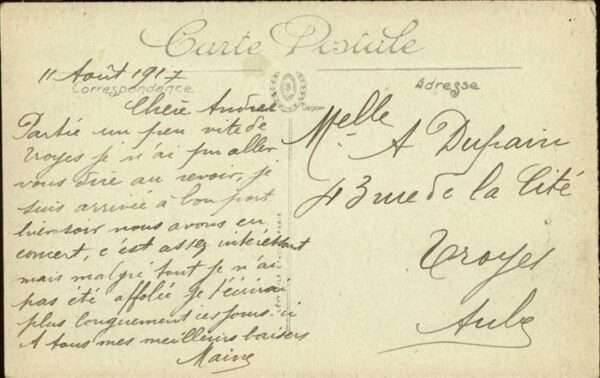 Carte Postale
11 Août 1917
Correspondance
Adresse
Chère Andrée
Partie un peu vite de
Troyes je n'ai pu aller
vous dire au revoir, je
suis arrivée à bon port
hier soir nous avons eu
concert, c'est assez intéressant
mais malgré tout je n'ai
pas été affolée je t'écrirai
plus longuement ces jours-ci
A tous mes meilleurs baisers
Melle A Dupain
43 rue de la Cité
Troyes
Aube